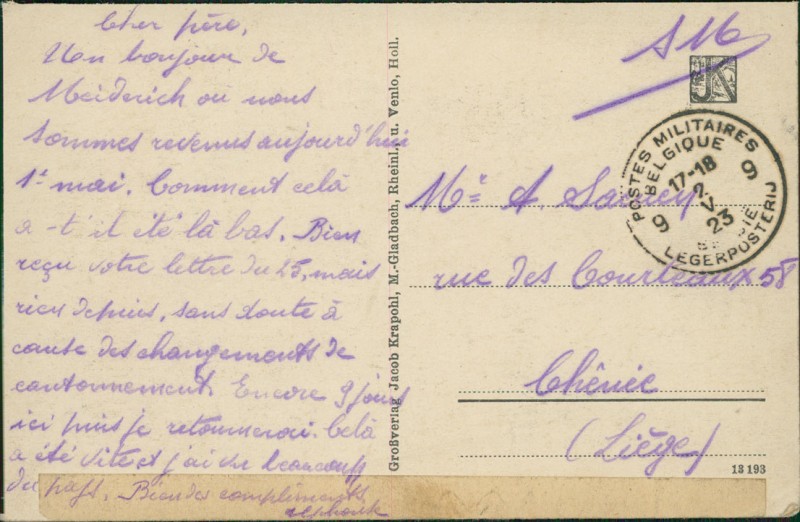 Cher père,
Un bonjour de
Meiderich où nous
sommes revenus aujourd'hui
1er mai. Comment celà
a-t'il été là bas. Bien
reçu votre lettre du 25, mais
rien depuis, sans doute à
cause des changements de
cantonnement. Encore 9 jours
ici puis je retournerai. Celà
a été vite et j'ai vu beaucoup
du pays. Bien des compliments
Großverlag Jacob Krapohl, M.-Gladbach, Rheinl. u. Venlo, Holl.
SM
JK
POSTES MILITAIRES
BELGIQUE
9 9
17-18
2
V
23
LEGERPOSTERIJ
Mr A.
rue des Courteaux 58
Chênée
(Liège)
13 193